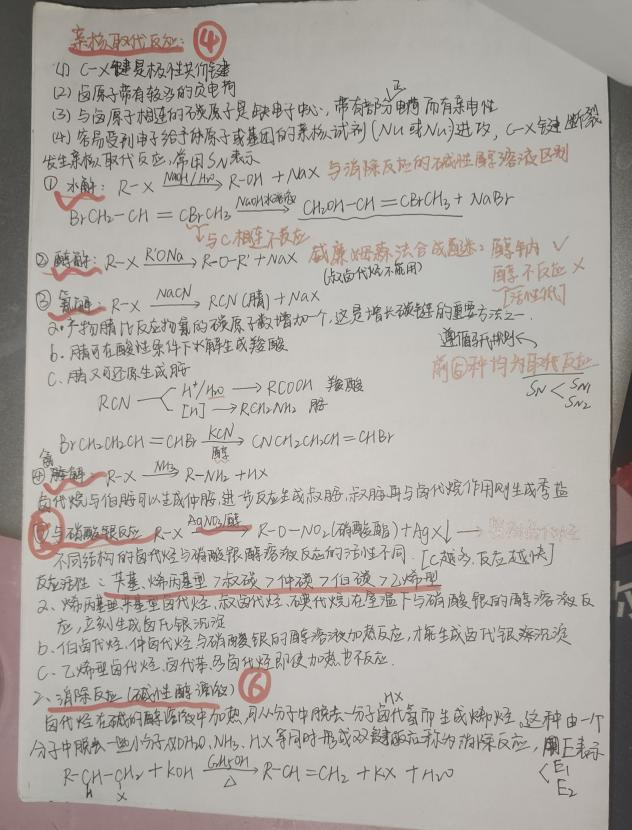 亲核取代反应：④
(1) C-X键是极性共价键
(2) 卤原子带有较多的负电荷
(3) 与卤原子相连的碳原子是缺电子中心，带有部分正电荷而有亲电性
(4) 容易受到电子给予体原子或基团的亲核试剂(Nu或Nu⁻)进攻，C-X键断裂
发生亲核取代反应，常用SN表示
① 水解：R-X —NaOH/H₂O→ R-OH + NaX 与消除反应的碱性醇溶液区别
BrCH₂-CH=CBrCH₃ —NaOH水溶液→ CH₂OH-CH=CBrCH₃ + NaBr
↳与C相连不反应
② 醇解：R-X —R'ONa→ R-O-R' + NaX 威廉姆森法合成醚：醇钠 ✓
(叔卤代烷不能用) 醇不反应 ×
[活性低]
③ 氰解：R-X —NaCN→ RCN(腈) + NaX
a. 产物腈比反应物氰的碳原子数增加一个，这是增长碳链的重要方法之一.
b. 腈可在酸性条件下水解生成羧酸
C. 腈又可还原生成胺
前⑤种均为取代反应
SN < SN1 SN2
RCN —H⁺/H₂O→ RCOOH 羧酸
—[H]→ RCH₂NH₂ 胺
BrCH₂CH₂CH=CHBr —KCN/醇→ CNCH₂CH₂CH=CHBr
④ 氨解：R-X —NH₃→ R-NH₂ + HX
卤代烷与伯胺可以生成仲胺，进一步反应生成叔胺，叔胺再与卤代烷作用则生成季盐
⑤ 与硝酸银反应 R-X —AgNO₃/醇→ R-O-NO₂(硝酸酯) + AgX↓
不同结构的卤代烃与硝酸银醇溶液反应的活性不同. [C越多，反应越快]
反应活性：苄基、烯丙基型>叔碳>仲碳>伯碳>乙烯型
a、烯丙基型苄基型卤代烃、叔卤代烃、碘代烷在室温下与硝酸银的醇溶液反
应，立刻生成卤化银沉淀
b. 伯卤代烃、仲卤代烃与硝酸银的醇溶液加热反应，才能生成卤化银沉淀
C. 乙烯型卤代烃、卤代苯、多卤代烃即使加热也不反应.
2、消除反应(碱性醇溶液) ⑥
卤代烃在碱的醇溶液中加热，可从分子中脱去一分子卤代氢HX而生成烯烃。这种由一个
分子中脱去一些小分子如H₂O、NH₃、HX等同时形成双键的反应称为消除反应，用E表示
R-CH-CH₂ + KOH —C₂H₅OH/△→ R-CH=CH₂ + KX + H₂O < E₁
H X E₂